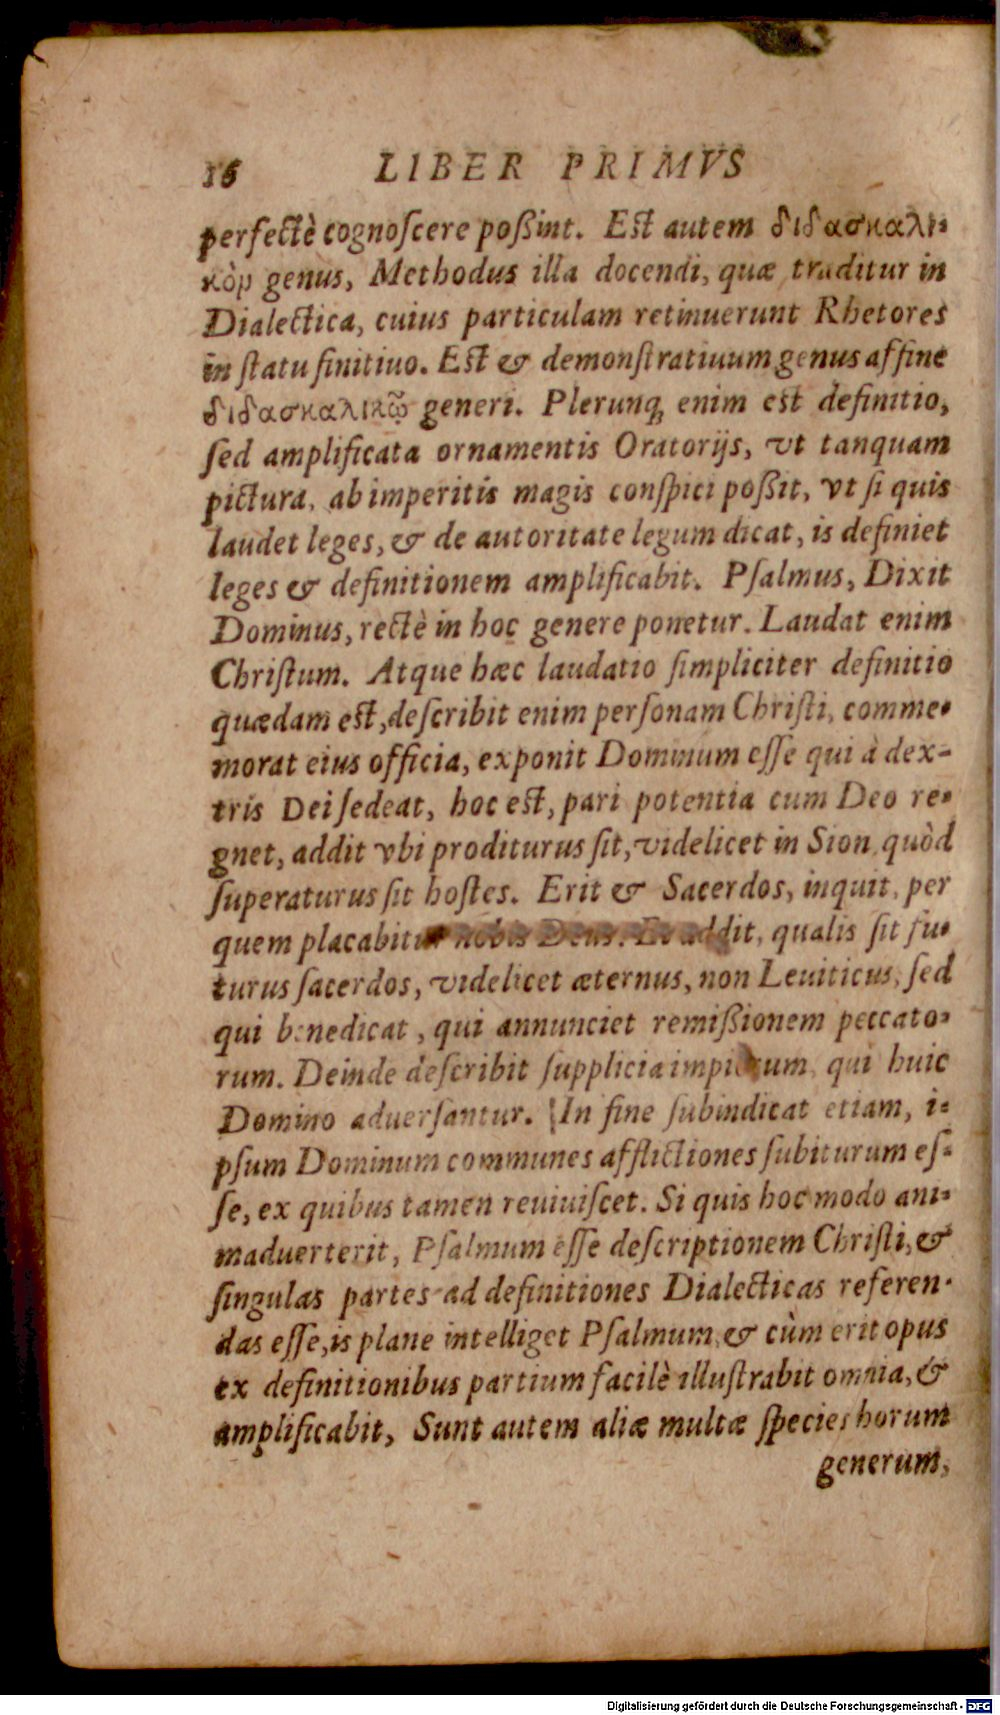 16 LIBER PRIMVS
perfectè cognoſcere poßint. Est autem διδασκαλι-
κὸμ genus, Methodus illa docendi, quæ traditur in
Dialectica, cuius particulam retinuerunt Rhetores
in ſtatu finitiuo. Est & demonſtratiuum genus affine
διδασκαλικῷ generi. Plerunqꝫ enim est definitio,
ſed amplificata ornamentis Oratorijs, vt tanquam
pictura, ab imperitis magis conſpici poßit, vt ſi quis
laudet leges, & de autoritate legum dicat, is definiet
leges & definitionem amplificabit. Pſalmus, Dixit
Dominus, rectè in hoc genere ponetur. Laudat enim
Chriſtum. Atque hæc laudatio ſimpliciter definitio
quædam est, deſcribit enim perſonam Chriſti, comme-
morat eius officia, exponit Dominum eſſe qui à dex-
tris Dei ſedeat, hoc est, pari potentia cum Deo re-
gnet, addit vbi proditurus ſit, videlicet in Sion, quòd
ſuperaturus ſit hoſtes. Erit & Sacerdos, inquit, per
quem placabitur nobis Deus. Et addit, qualis ſit fu-
turus ſacerdos, videlicet æternus, non Leuiticus, ſed
qui benedicat, qui annunciet remißionem peccato-
rum. Deinde deſcribit ſupplicia impiorum, qui huic
Domino aduerſantur. In fine ſubindicat etiam, i-
pſum Dominum communes afflictiones ſubiturum eſ-
ſe, ex quibus tamen reuiuiſcet. Si quis hoc modo ani-
maduerterit, Pſalmum eſſe deſcriptionem Chriſti, &
ſingulas partes ad definitiones Dialecticas referen-
das eſſe, is plane intelliget Pſalmum, & cùm erit opus
ex definitionibus partium facilè illuſtrabit omnia, &
amplificabit, Sunt autem aliæ multæ ſpecies horum
generum,
Digitalisierung gefördert durch die Deutsche Forschungsgemeinschaft - DFG